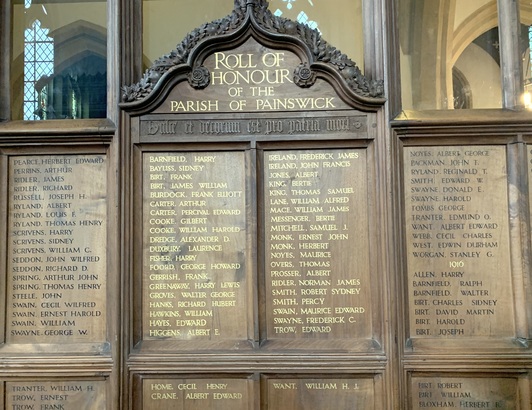 ROLL OF
HONOUR
OF THE
PARISH OF PAINSWICK
Dulce et decorum est pro patria mori
PEARCE, HERBERT EDWARD
PERRINS, ARTHUR
RIDLER, JAMES
RIDLER, RICHARD
RUSSELL, JOSEPH H.
RYLAND, ALBERT
RYLAND, LOUIS F.
RYLAND, THOMAS HENRY
SCRIVENS, HARRY
SCRIVENS, SIDNEY
SCRIVENS, WILLIAM G.
SEDDON, JOHN WILFRED
SEDDON, RICHARD D.
SPRING, ARTHUR JOHN
SPRING, THOMAS HENRY
STEELE, JOHN
SWAIN, CECIL WILFRED
SWAIN, ERNEST HAROLD
SWAIN, WILLIAM
SWAYNE, GEORGE W.
TRANTER, WILLIAM H.
TROW, ERNEST
TROW, FRANK
BARNFIELD, HARRY
BAYLISS, SIDNEY
BIRT, FRANK
BIRT, JAMES WILLIAM
BURDOCK, FRANK ELIOTT
CARTER, ARTHUR
CARTER, PERCIVAL EDWARD
COOKE, GILBERT
COOKE, WILLIAM HAROLD
DREDGE, ALEXANDER D.
LAURENCE
FISHER, HARRY
FOORD, GEORGE HOWARD
GIBERISH, FRANK
GREENAWAY, HARRY LEWIS
GROVES, WALTER GEORGE
HANKS, RICHARD HUBERT
HAWKINS, WILLIAM
HAYES, EDWARD
HIGGENS, ALBERT E.
HOME, CECIL HENRY
CRANE, ALBERT EDWARD
IRELAND, FREDERICK JAMES
IRELAND, JOHN FRANCIS
JONES, ALBERT
KING, BERTIE
KING, THOMAS SAMUEL
LANE, WILLIAM ALFRED
MACE, WILLIAM JAMES
MESSENGER, BERTIE
MITCHELL, SAMUEL J.
MONK, ERNEST JOHN
MONK, HERBERT
NOYES, MAURICE
OVERS, THOMAS
PROSSER, ALBERT
RIDLER, NORMAN JAMES
SMITH, ROBERT SYDNEY
SMITH, PERCY
SWAIN, MAURICE EDWARD
SWAYNE, FREDERICK C.
TROW, EDWARD
WANT, WILLIAM H. J.
NOYES, ALBERT GEORGE
PACKMAN, JOHN T.
RYLAND, REGINALD T.
SMITH, EDWARD W.
SWAYNE, DONALD E.
SWAYNE, HAROLD
TOMBS, GEORGE
TRANTER, EDMUND O.
WANT, ALBERT EDWARD
WEBB, CECIL CHARLES
WEST, EDWIN DURHAM
WORGAN, STANLEY G.
1916
ALLEN, HARRY
BARNFIELD, RALPH
BARNFIELD, WALTER
BIRT, CHARLES SIDNEY
BIRT, DAVID MARTIN
BIRT, HAROLD
BIRT, JOSEPH
BIRT, ROBERT
BIRT, WILLIAM
BLOXHAM, HERBERT